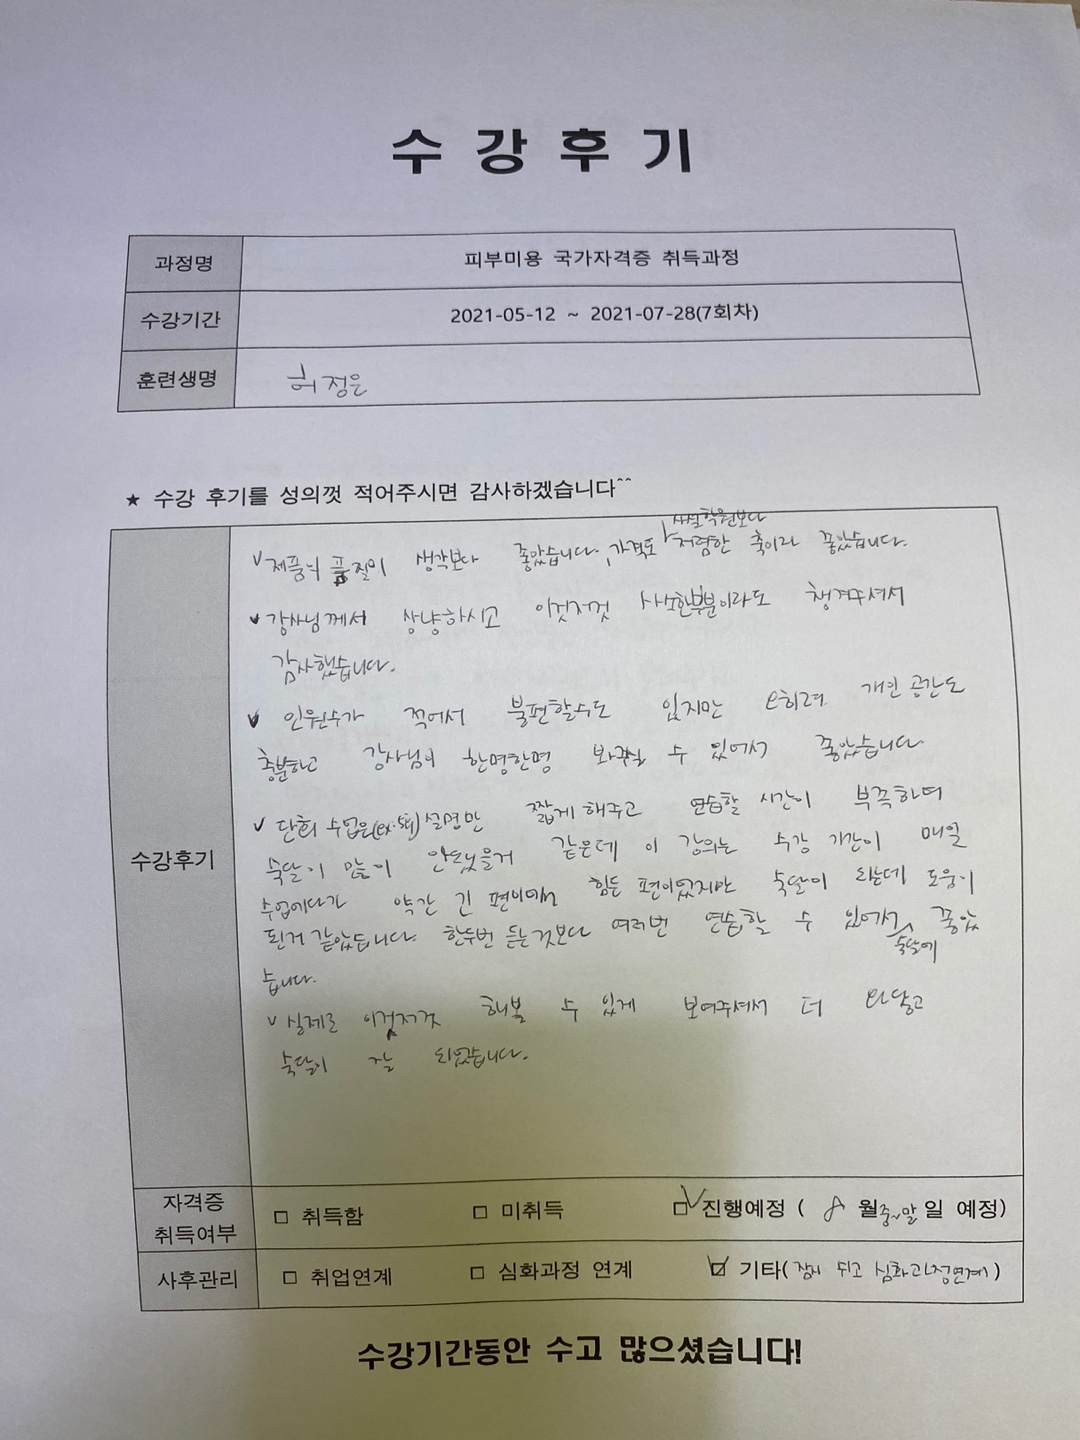 수 강 후 기
과정명 피부미용 국가자격증 취득과정
수강기간 2021-05-12 ~ 2021-07-28(7회차)
훈련생명 허정은
★ 수강 후기를 성의껏 적어주시면 감사하겠습니다^^
사설학원보다
√ 제품의 품질이 생각보다 좋았습니다, 가격도 저렴한 축이라 좋았습니다.
√ 강사님께서 상냥하시고 이것저것 사소한부분이라도 챙겨주셔서
감사했습니다.
√ 인원수가 적어서 불편할수도 있지만 오히려 개인 공간도
충분하고 강사님이 한명한명 봐주실 수 있어서 좋았습니다
√ 단회 수업은(ex:5회) 설명만 짧게 해주고 연습할 시간이 부족하며
숙달이 많이 안되었을거 같은데 이 강의는 수강 기간이 매일
수강후기
수업에다가 약간 긴 편이여서 힘든 편이였지만 숙달이 되는데 도움이
된거 같았습니다. 한두번 듣는것보다 여러번 연습할 수 있어서 좋았
숙달에
습니다.
√ 실제로 이것저것 해볼 수 있게 보여주셔서 더 와닿고
숙달이 잘 되었습니다.
자격증
취득여부 □ 취득함 □ 미취득 □ 진행예정 ( 8 월중~말일 예정)
사후관리 □ 취업연계 □ 심화과정 연계 □ 기타(잠시 쉬고 심화과정연계)
수강기간동안 수고 많으셨습니다!